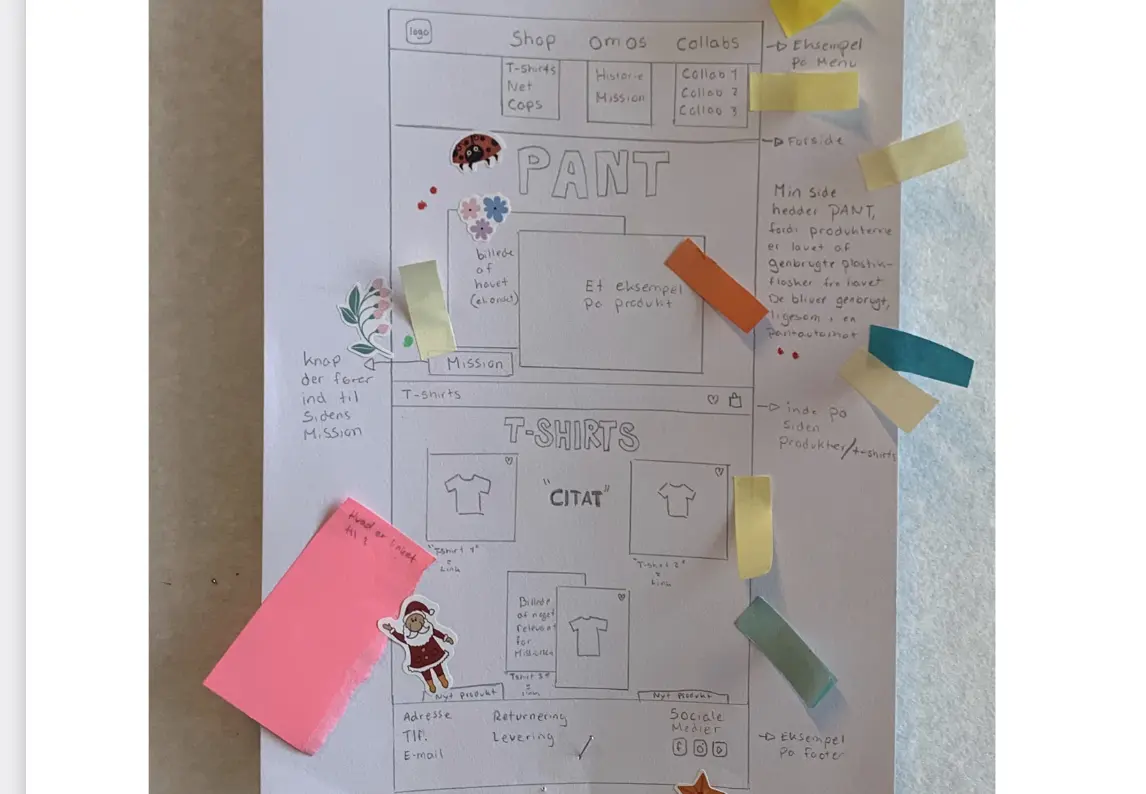 logo
Shop
om os
Collabs
T-shirts
Net
Caps
Historie
Mission
Collab 1
Collab 2
Collab 3
Eksempel
på Menu
Forside
PANT
Min side
hedder PANT,
fordi produkterne
er lavet af
genbrugte plastik-
flasker fra havet
De bliver genbrugt,
ligesom i en
pantautomat
billede
af
havet
(ekonkt)
Et eksempel
på produkt
Mission
Knap
der fører
ind til
Sidens
Mission
T-shirts
inde på
siden
produkter/t-shirts
T-SHIRTS
"CITAT"
"T-shirt 1"
Link
"T-shirt 2"
Link
Hvad er
til ?
Billede
af noget
relevant
for
Missionen
"Tshirt 3"
Link
Nyt produkt
Nyt produkt
Adresse
Tlf.
E-mail
Returnering
Levering
Sociale
Medier
f
Eksempel
på footer